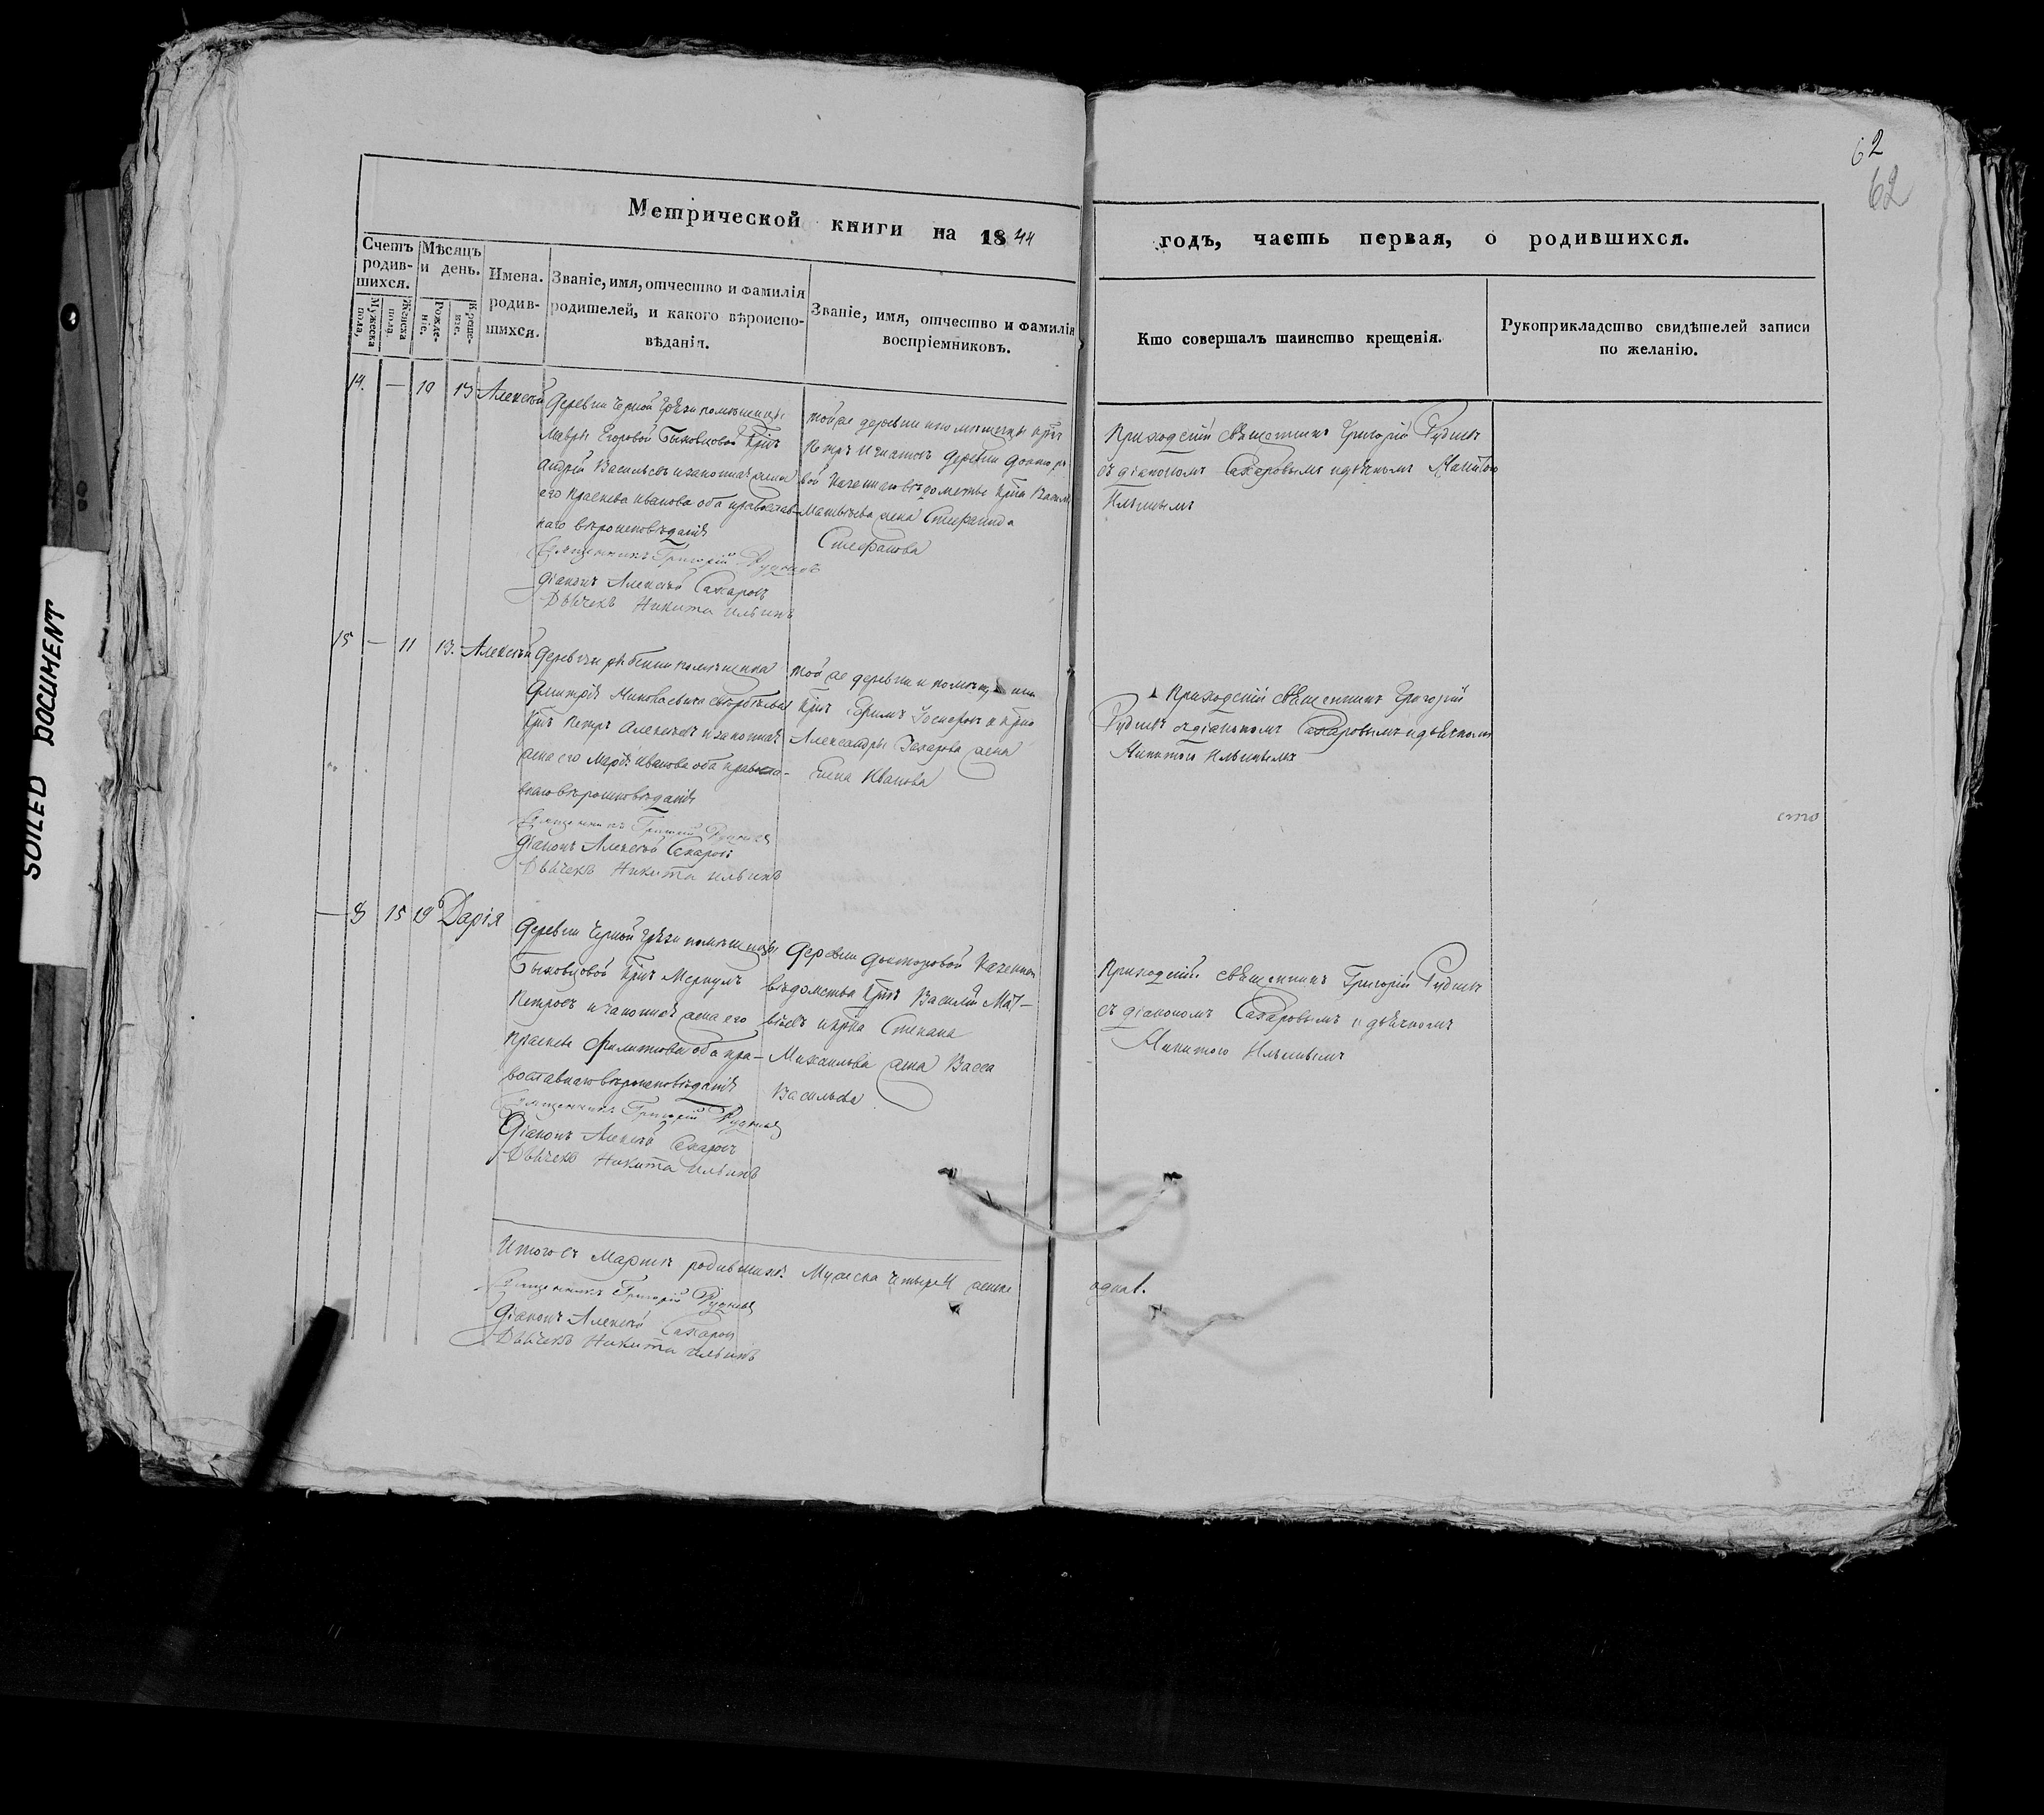 62
62
SOILED DOCUMENT
Метрической книги на 1844
годъ, часть первая, о родившихся.
Счетъ родив-
шихся.
Мужеска пола,
Женска пола.
Мѣсяцъ
и день.
Рожде-
ніе.
Креще-
ніе.
Имена.
родив-
шихся.
Званіе, имя, отчество и фамилія
родителей, и какого вѣроиспо-
вѣданія.
Званіе, имя, отчество и фамилія
воспріемниковъ.
Кто совершалъ таинство крещенія.
Рукоприкладство свидѣтелей записи
по желанію.
14. — 10 13 Алексѣй
Деревни Черной Грязи помѣщицы
Мавры Егоровой Быковцовой крнъ
Андрей Васильевъ и законная жена
его Праскева Иванова оба православ-
наго вѣроисповѣданія
Священникъ Григорій Рудневъ
Діаконъ Алексѣй Сахаровъ
Дьячекъ Никита Ильинъ
той же деревни и помѣщицы крнъ
Петръ Игнатовъ деревни
вой казеннаго вѣдомства крна Василья
Матвѣева жена Степанида
Стефанова
Приходскій священникъ Григорій Рудневъ
съ діакономъ Сахаровымъ и дьячкомъ Никитою
Ильинымъ
15 — 11 13. Алексѣй
Деревни помѣщика
Дмитрія Николаевича
крнъ Петръ Алексѣевъ и законная
жена его Марѳа Иванова оба правосла-
внаго вѣроисповѣданія
Священникъ Григорій Рудневъ
Діаконъ Алексѣй Сахаровъ
Дьячекъ Никита Ильинъ
той же деревни и помѣщика
крнъ Ефимъ Іосифовъ и крна
Александры Захарова жена
Елена Иванова
Приходскій священникъ Григорій
Рудневъ съ діакономъ Сахаровымъ и дьячкомъ
Никитою Ильинымъ
— 8 15 19 Дарія
Деревни Черной Грязи помѣщицы
Быковцовой крнъ Меркулъ
Петровъ и законная жена его
Праскева Филипова оба пра-
вославнаго вѣроисповѣданія
Священникъ Григорій Рудневъ
Діаконъ Алексѣй Сахаровъ
Дьячекъ Никита Ильинъ
Деревни казеннаго
вѣдомства крнъ Василій Мат-
вѣевъ и крна Степана
Михаилова жена Васса
Васильева
Приходскій священникъ Григорій Рудневъ
съ діакономъ Сахаровымъ и дьячкомъ
Никитою Ильинымъ
Итого въ Мартѣ родившихся Мужеска четыре 4 женска
одна 1.
Священникъ Григорій Рудневъ
Діаконъ Алексѣй Сахаровъ
Дьячекъ Никита Ильинъ
сто